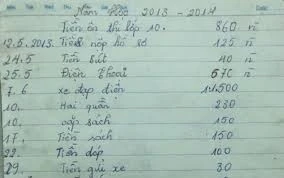 Năm học 2013 - 2014
Tiền ôn thi lớp 10. 860 n
12.5.2013. Tiền nộp hồ sơ 125 n
24.5 Tiền bút 40 n
25.5 Điện thoại 570 n
7.6 xe đạp điện 11.500
10. Hai quần 230
10. cặp sách 150
17. Tiền sách 150
22. Tiền dép 100
29. Tiền gửi xe 30